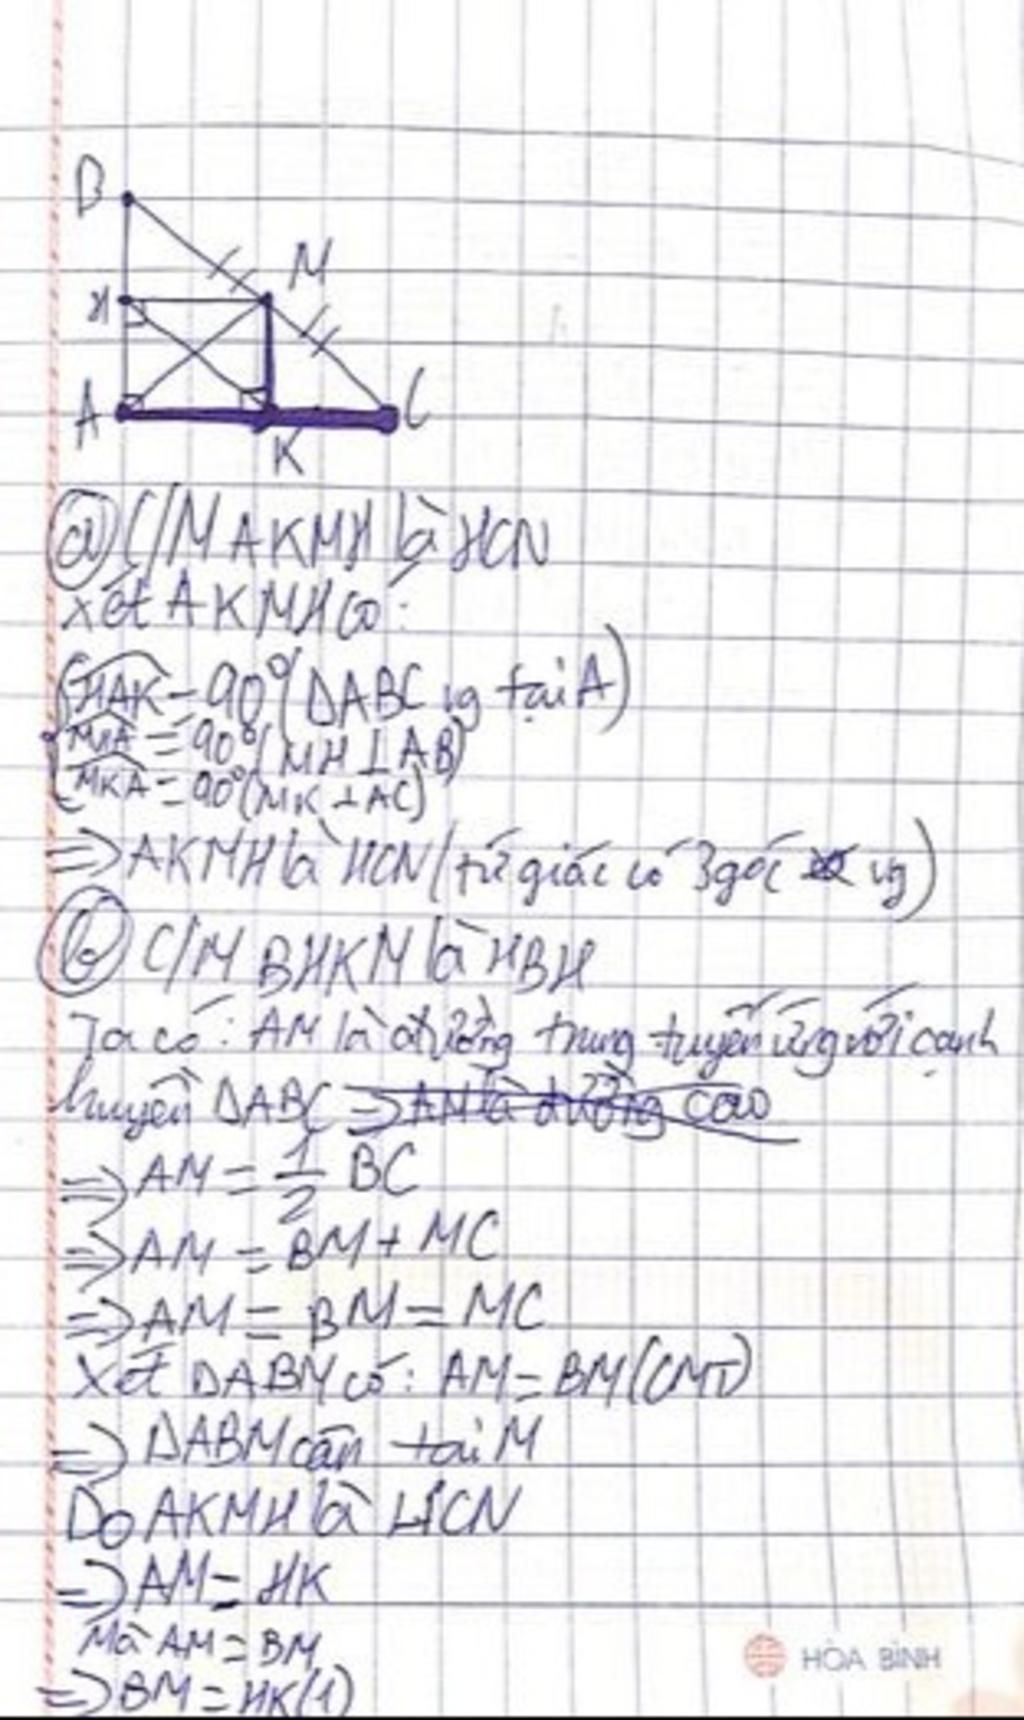 B
M
H
A
C
K
a) C/M AKMH là HCN
Xét AKMH có:
HAK = 90° (ΔABC vg tại A)
MHA = 90° (MH ⊥ AB)
MKA = 90° (MK ⊥ AC)
=> AKMH là HCN (tứ giác có 3 góc vg)
b) C/M BHKM là HBH
Ta có: AM là đường trung tuyến ứng với cạnh
huyền ΔABC => AM là đường cao
=> AM = 1/2 BC
=> AM = BM + MC
=> AM = BM = MC
Xét ΔABM có: AM = BM (CMT)
=> ΔABM cân tại M
Do AKMH là HCN
=> AM = HK
Mà AM = BM
=> BM = HK (1)
HÒA BÌNH